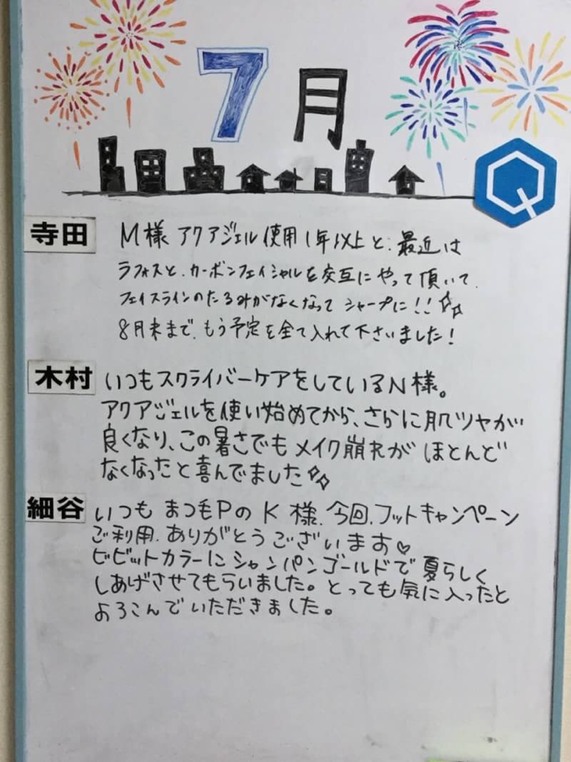 7月
Q
寺田
M様 アクアジェル使用1年以上と、最近は
ラフォスと、カーボンフェイシャルを交互にやって頂いて、
フェイスラインのたるみがなくなって シャープに!!
8月末まで、もう予定を全て入れて下さいました!
木村
いつもスクライバーケアをしているN様。
アクアジェルを使い始めてから、さらに肌ツヤが
良くなり、この暑さでもメイク崩れが ほとんど
なくなったと喜んでました
細谷
いつも まつ毛PのK様、今回、フットキャンペーン
ご利用、ありがとうございます♡
ビビットカラーにシャンパンゴールドで夏らしく
しあげさせてもらいました。とっても気に入ったと
よろこんでいただきました。